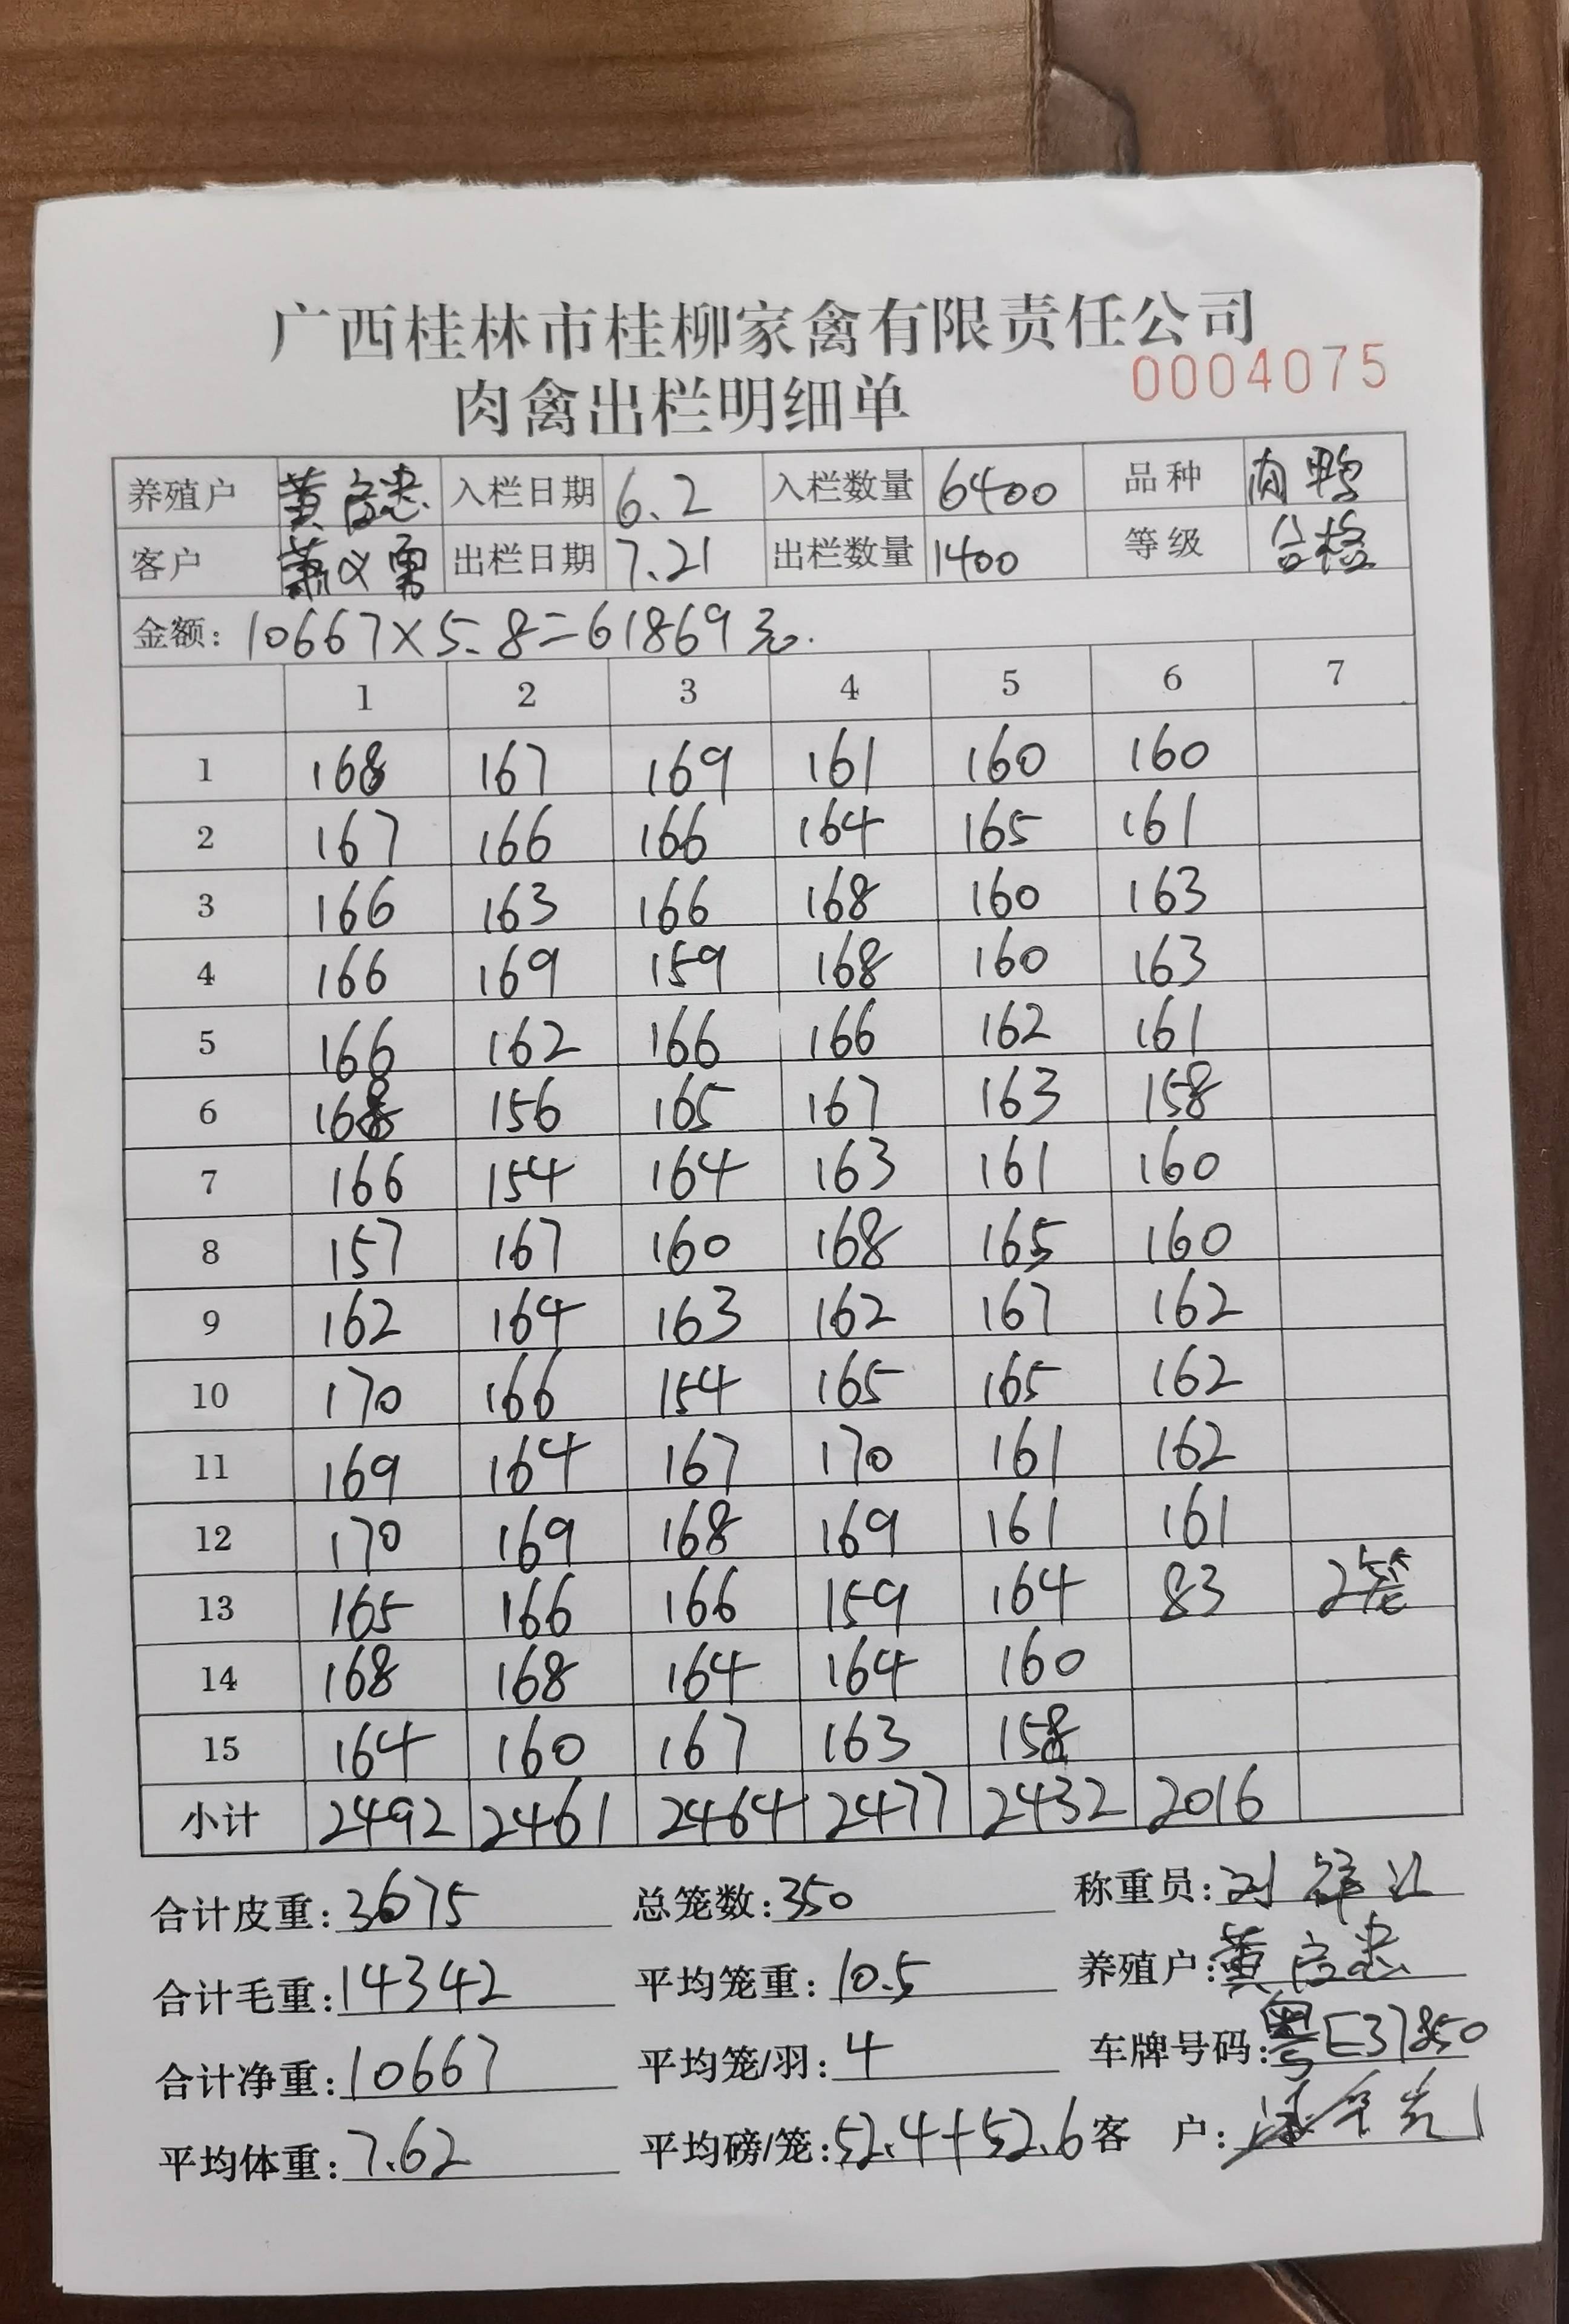 广西桂林市桂柳家禽有限责任公司
0004075
肉禽出栏明细单
养殖户 黄 忠 入栏日期 6.2 入栏数量 6400 品种 肉鸭
客户 萧义勇 出栏日期 7.21 出栏数量 1400 等级 合格
金额: 10667×5.8=61869元.
1 2 3 4 5 6 7
1 168 167 169 161 160 160
2 167 166 166 164 165 161
3 166 163 166 168 160 163
4 166 169 159 168 160 163
5 166 162 166 166 162 161
6 168 156 165 167 163 158
7 166 154 164 163 161 160
8 157 167 160 168 165 160
9 162 164 163 162 167 162
10 170 166 154 165 165 162
11 169 164 167 170 161 162
12 170 169 168 169 161 161
13 165 166 166 159 164 83 2笼
14 168 168 164 164 160
15 164 160 167 163 158
小计 2492 2461 2464 2477 2432 2016
合计皮重: 3675 总笼数: 350 称重员: 刘祥
合计毛重: 14342 平均笼重: 10.5 养殖户: 黄 忠
合计净重: 10667 平均笼/羽: 4 车牌号码: 粤E37850
平均体重: 7.62 平均磅/笼: 52.4+52.6 客 户: